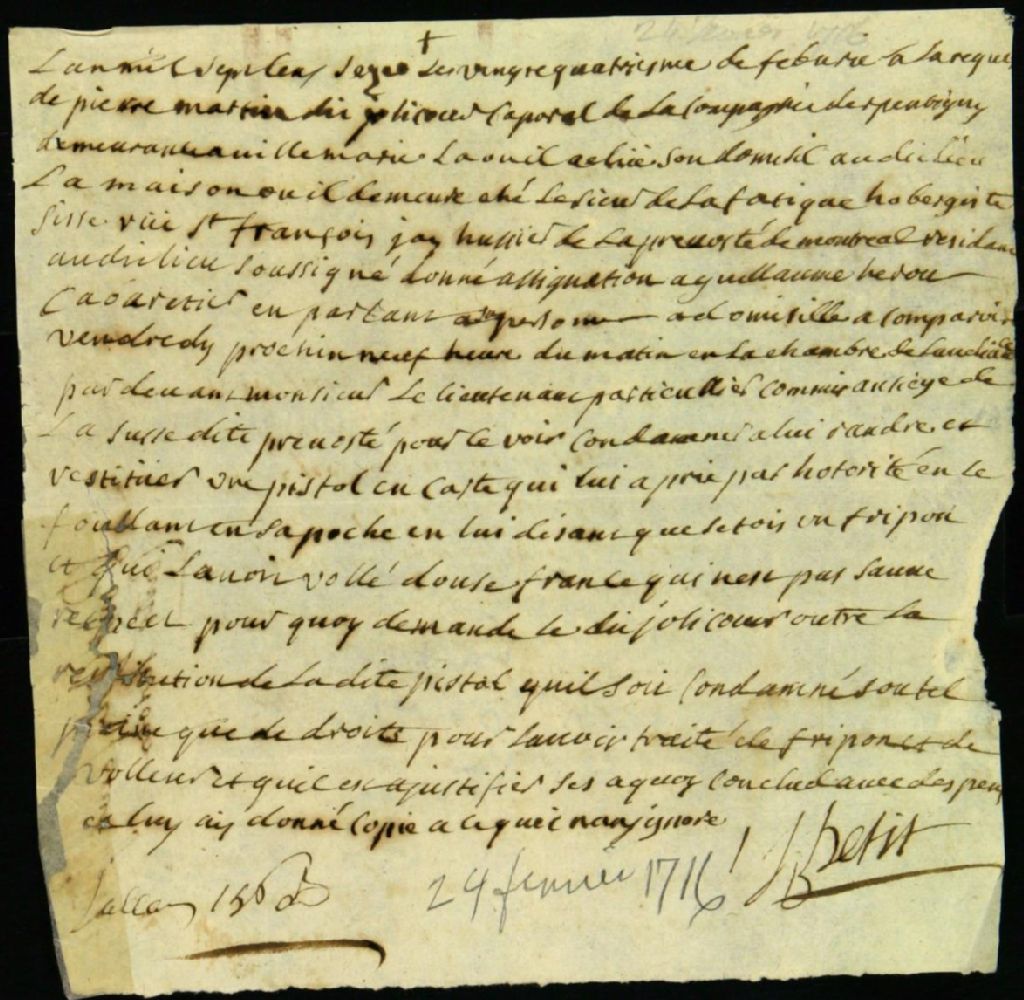 +
Lan mil sept cens seze Le vingt quatriesme de febvrie a La reque
de pierre martin dit jolicoeur Caporal de La Compagnie de repentigny
demeurant a villemarie La ou il a eslüe son domisil audit lieu
La maison ou il demeure ché Le sieur de La fatigue hobergiste
sisse rüe St françois jay hussier de La prevosté de montreal residant
audit lieu soussigné donné assignation a guillaume herou
Cabaretier en parlant a sa personne a domisille a comparoir
vendredy prochin neuf heure du matin en La chambre de Laudiance
pardevant monsieur Le lieutenant particullier commis au siege de
La susse dite prevosté pour le voir condamner a lui randre et
restituer une pistol en Carte qui lui a prie par hotorité en le
foullant en sa poche en lui disant que setois un fripon
et quil Lavoir vollé douse france qui nest pas saune
respect pour quoy demande le dit jolicoeur outre La
restitution de La dite pistol quil soit Condamné a tel
peine que de droite pour Lavoir traité de fripon et de
volleur et quil est a justifier ses a quoy conclud avec despens
et luy ay donné Copie a ce quil nan ignore
J Petit
Sallair 15s
24 fevrier 1716